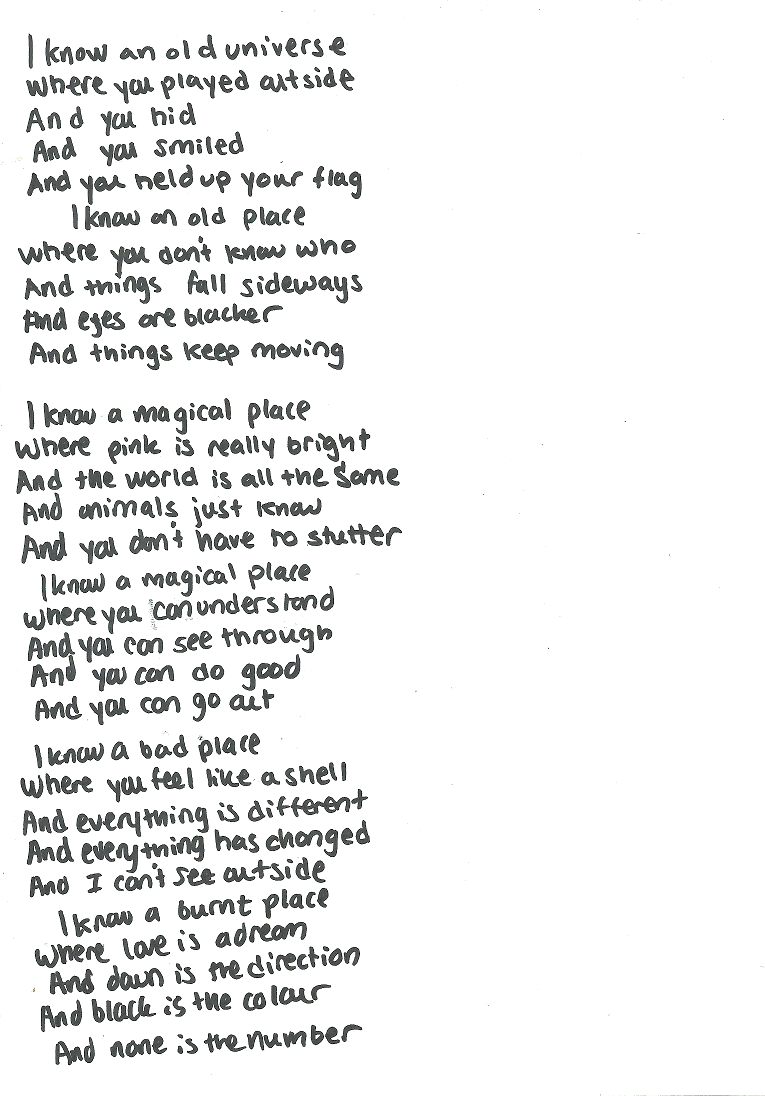 I know an old universe
Where you played outside
And you hid
And you smiled
And you held up your flag
I know an old place
Where you don't know who
And things fall sideways
And eyes are blacker
And things keep moving
I know a magical place
Where pink is really bright
And the world is all the same
And animals just know
And you don't have to stutter
I know a magical place
Where you can understand
And you can see through
And you can do good
And you can go out
I know a bad place
Where you feel like a shell
And everything is different
And everything has changed
And I can't see outside
I know a burnt place
Where love is a dream
And down is the direction
And black is the colour
And none is the number